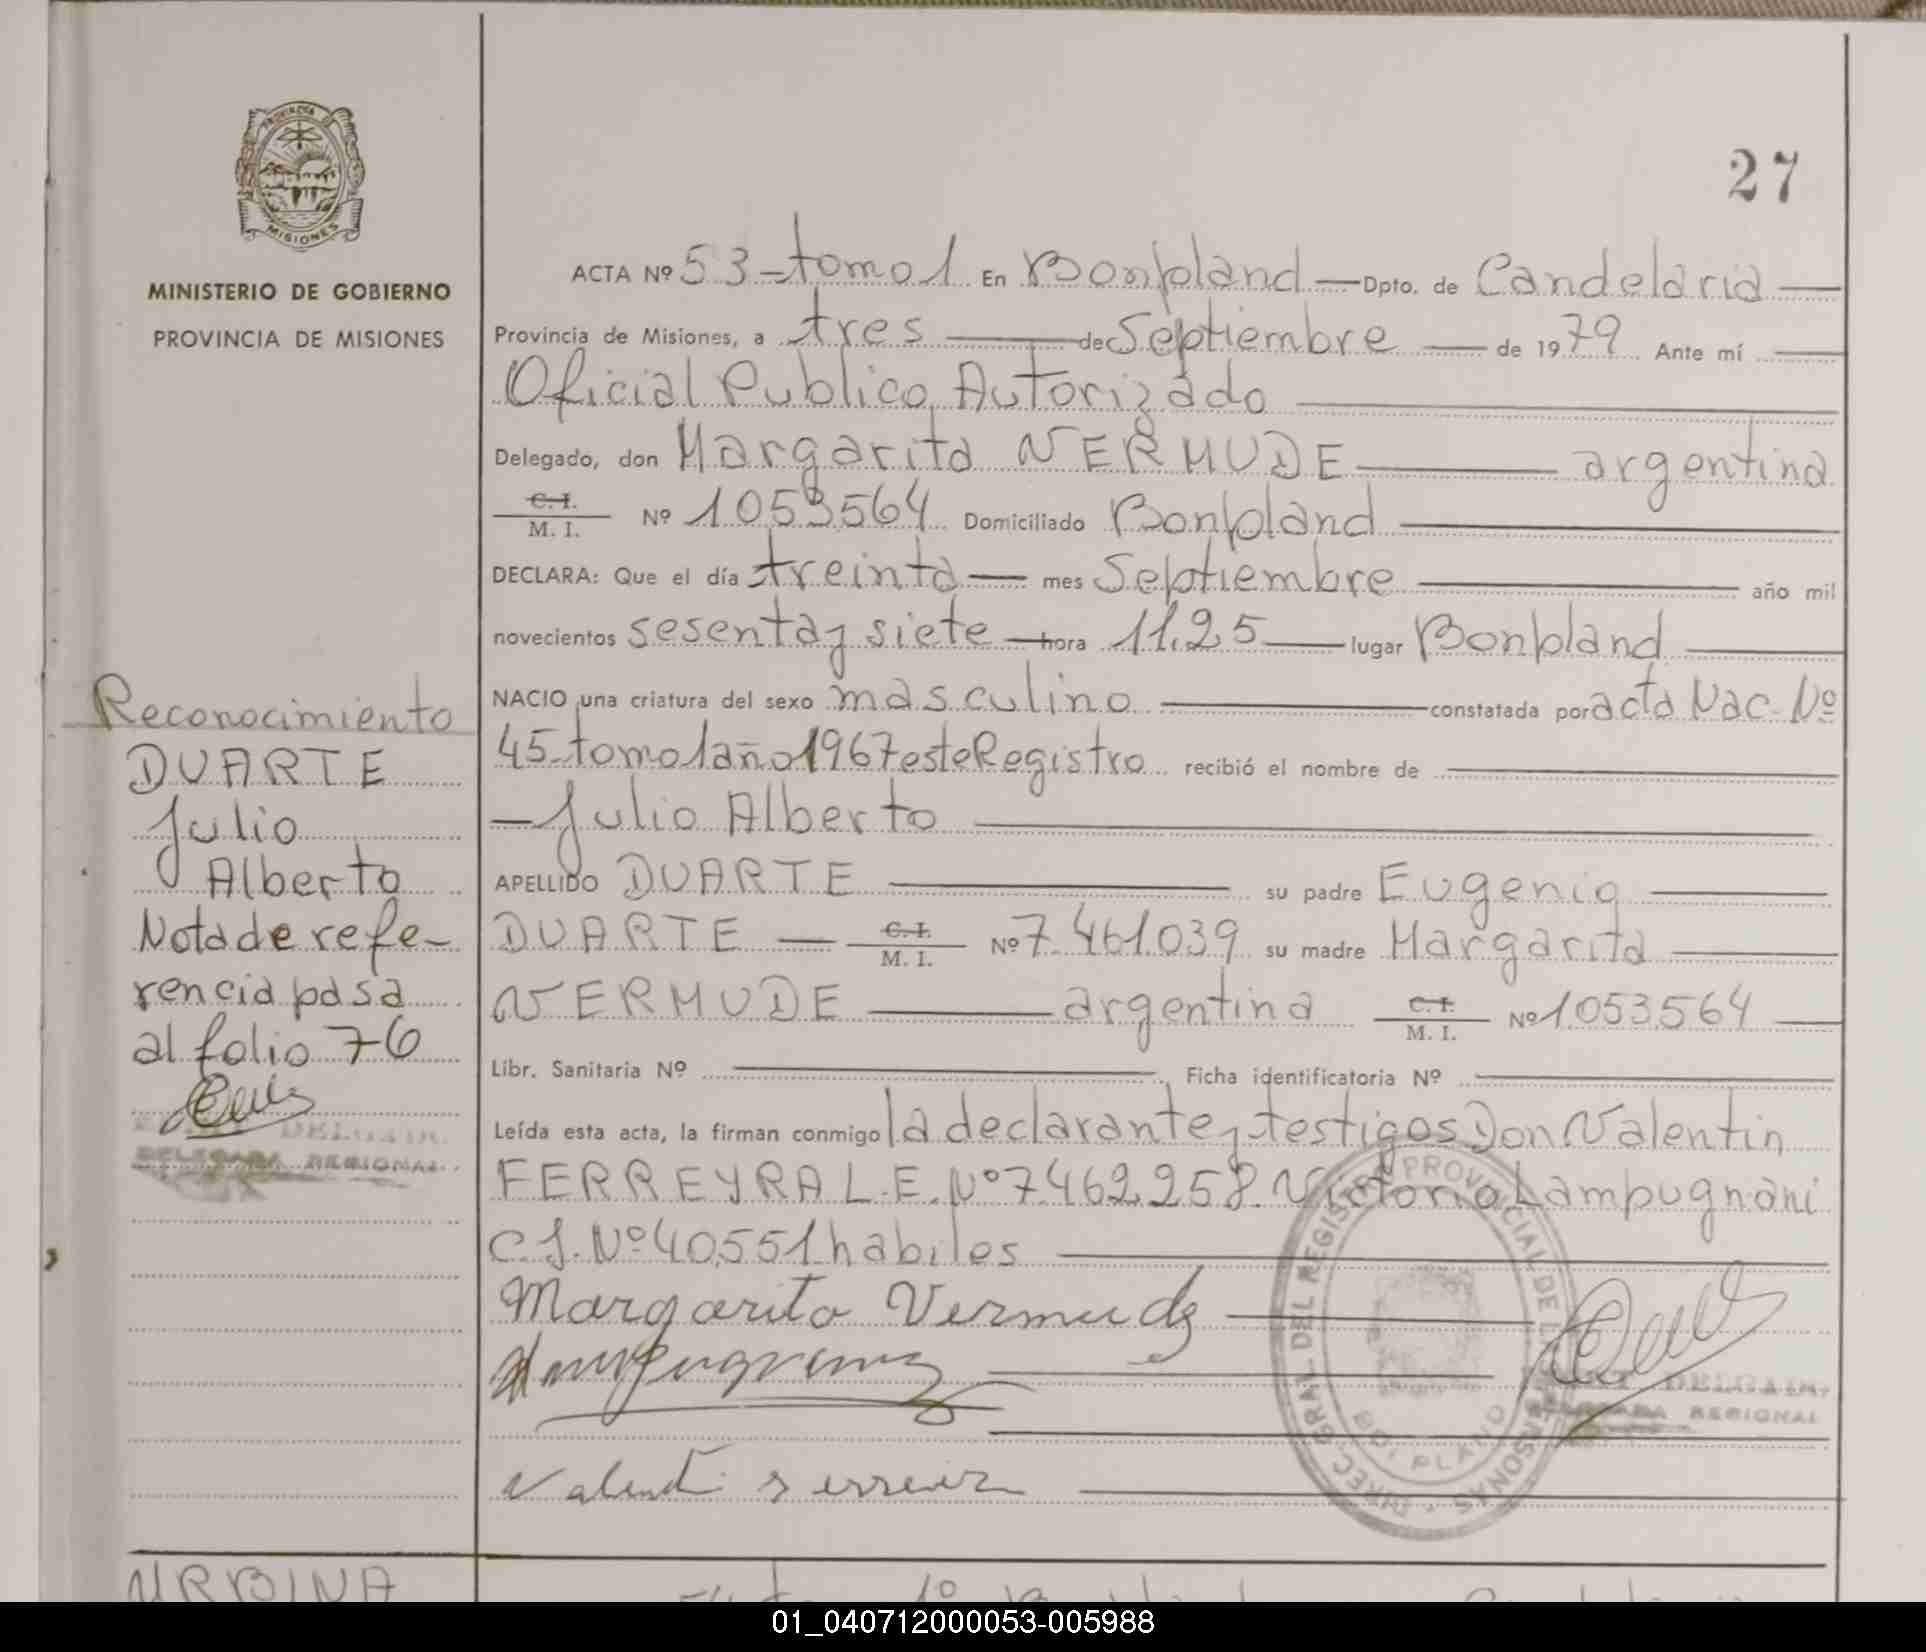 27
PROVINCIA D
MISIONES
MINISTERIO DE GOBIERNO
PROVINCIA DE MISIONES
ACTA Nº 53-tomo 1 En Bonpland — Dpto. de Candelaria —
Provincia de Misiones, a tres — de Septiembre — de 1979 Ante mí —
Oficial Publico Autorizado —
Delegado, don Margarita VERMUDE — argentina
C. I.
M. I. Nº 1053564 Domiciliado Bonpland —
DECLARA: Que el día treinta — mes Septiembre — año mil
novecientos sesenta y siete — hora 11,25 — lugar Bonpland —
NACIO una criatura del sexo masculino — constatada por acta Nac. Nº
45-tomo 1 año 1967 este Registro recibió el nombre de —
— Julio Alberto —
APELLIDO DUARTE — su padre Eugenio —
DUARTE — C. I. M. I. Nº 7.461.039 su madre Margarita —
VERMUDE — argentina C. I. M. I. Nº 1.053.564 —
Libr. Sanitaria Nº — Ficha identificatoria Nº —
Leída esta acta, la firman conmigo la declarante y testigos Don Valentin
FERREYRA L.E. Nº 7462258. Victorio Lampugnani
C.I. Nº 40.551 habiles —
Margarita Vermude
Reconocimiento
DUARTE
Julio
Alberto
Nota de refe-
rencia pasa
al folio 76
DELEGADA REGIONAL
DIREC. GRAL. DEL REGISTRO PROVINCIAL DE LAS PERSONAS
DELEGADA REGIONAL
URBINA
01_040712000053-005988